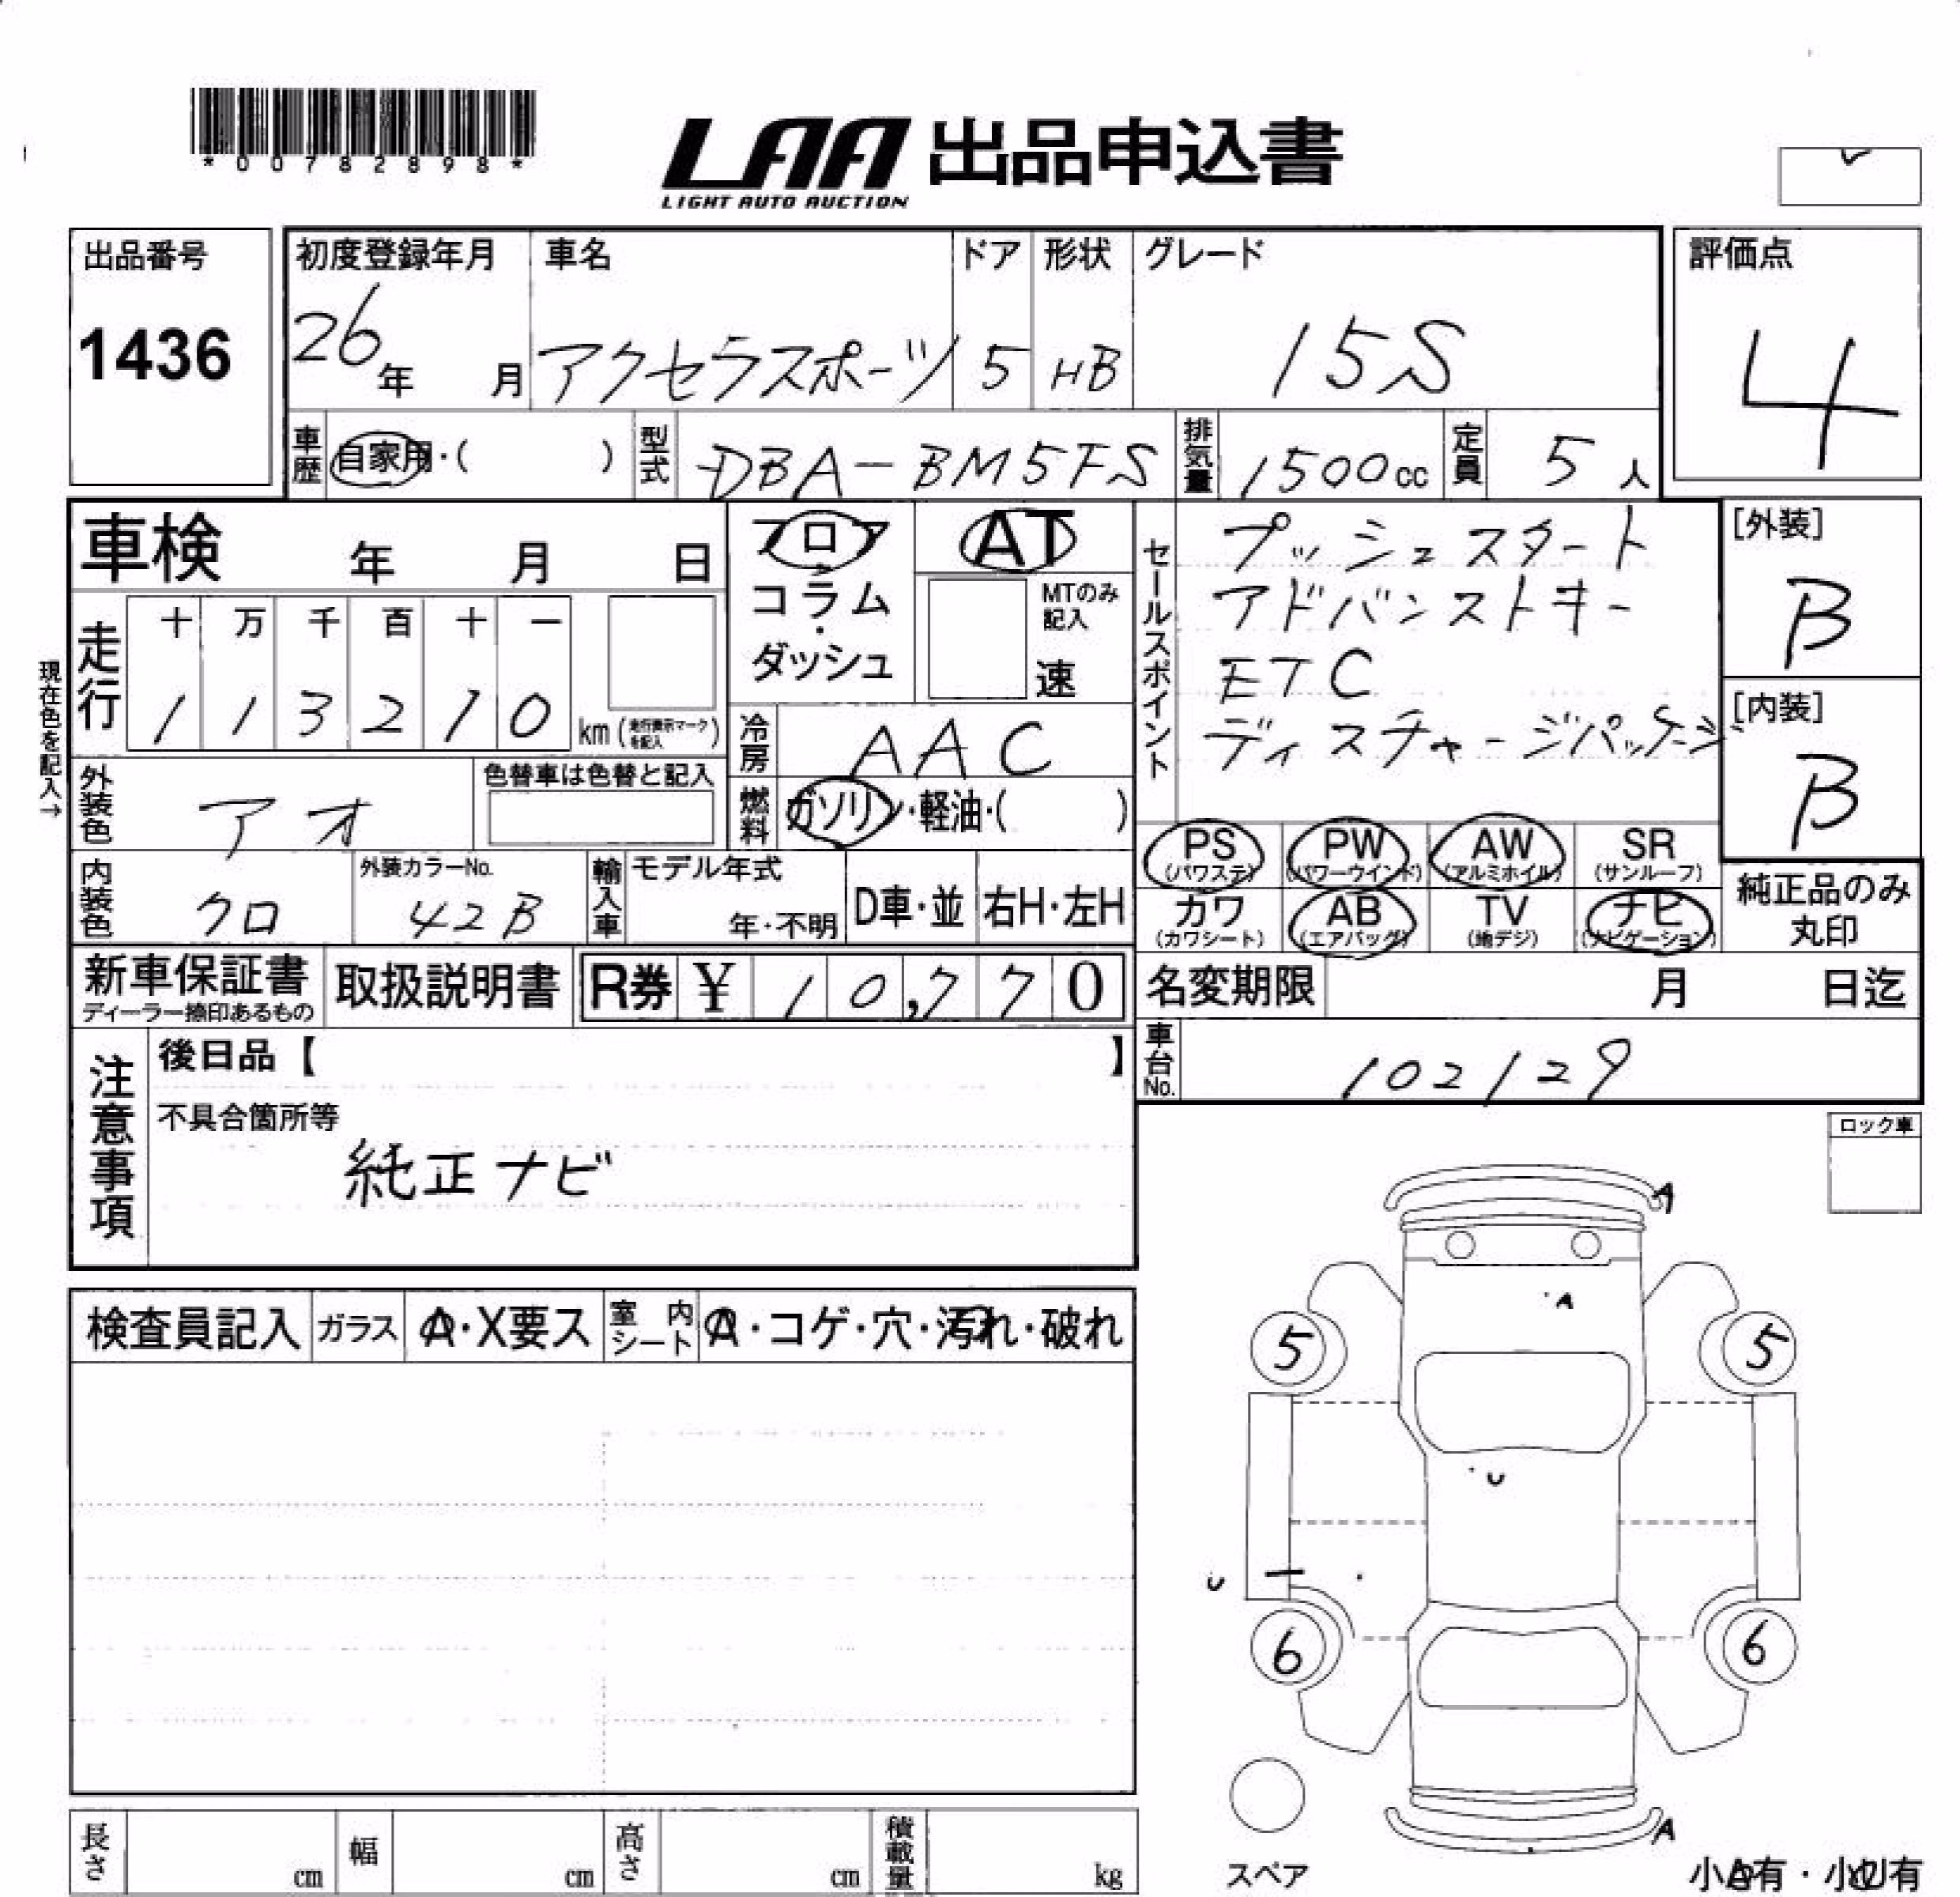 *00782898*
LAA 出品申込書
LIGHT AUTO AUCTION
出品番号
1436
初度登録年月
26年 月
車名
アクセラスポーツ
ドア
5
形状
HB
グレード
15S
評価点
4
車歴
自家用・( )
型式
DBA-BM5FS
排気量
1500cc
定員
5人
車検 年 月 日
現在色を記入→
走行
十 万 千 百 十 一
1 1 3 2 1 0
km(走行表示マークを記入)
フロア
コラム
・
ダッシュ
AT
MTのみ
記入
速
セールスポイント
プッシュスタート
アドバンストキー
ETC
ディスチャージパッケージ
[外装]
B
[内装]
B
冷房
AAC
燃料
ガソリン・軽油・( )
外装色
アオ
色替車は色替と記入
内装色
クロ
外装カラーNo.
42B
輸入車
モデル年式
年・不明
D車・並
右H・左H
PS
(パワステ)
PW
(パワーウインド)
AW
(アルミホイル)
SR
(サンルーフ)
カワ
(カワシート)
AB
(エアバッグ)
TV
(地デジ)
ナビ
(ナビゲーション)
純正品のみ
丸印
新車保証書
ディーラー捺印あるもの
取扱説明書
R券 ¥ 10,770
名変期限 月 日迄
車台No.
102129
注意事項
後日品【 】
不具合箇所等
純正ナビ
ロック車
検査員記入
ガラス
A・X要ス
室内
シート
A・コゲ・穴・汚れ・破れ
A
A
5
5
U
U
6
6
A
スペア
小A有・小U有
長さ
cm
幅
cm
高さ
cm
積載量
kg